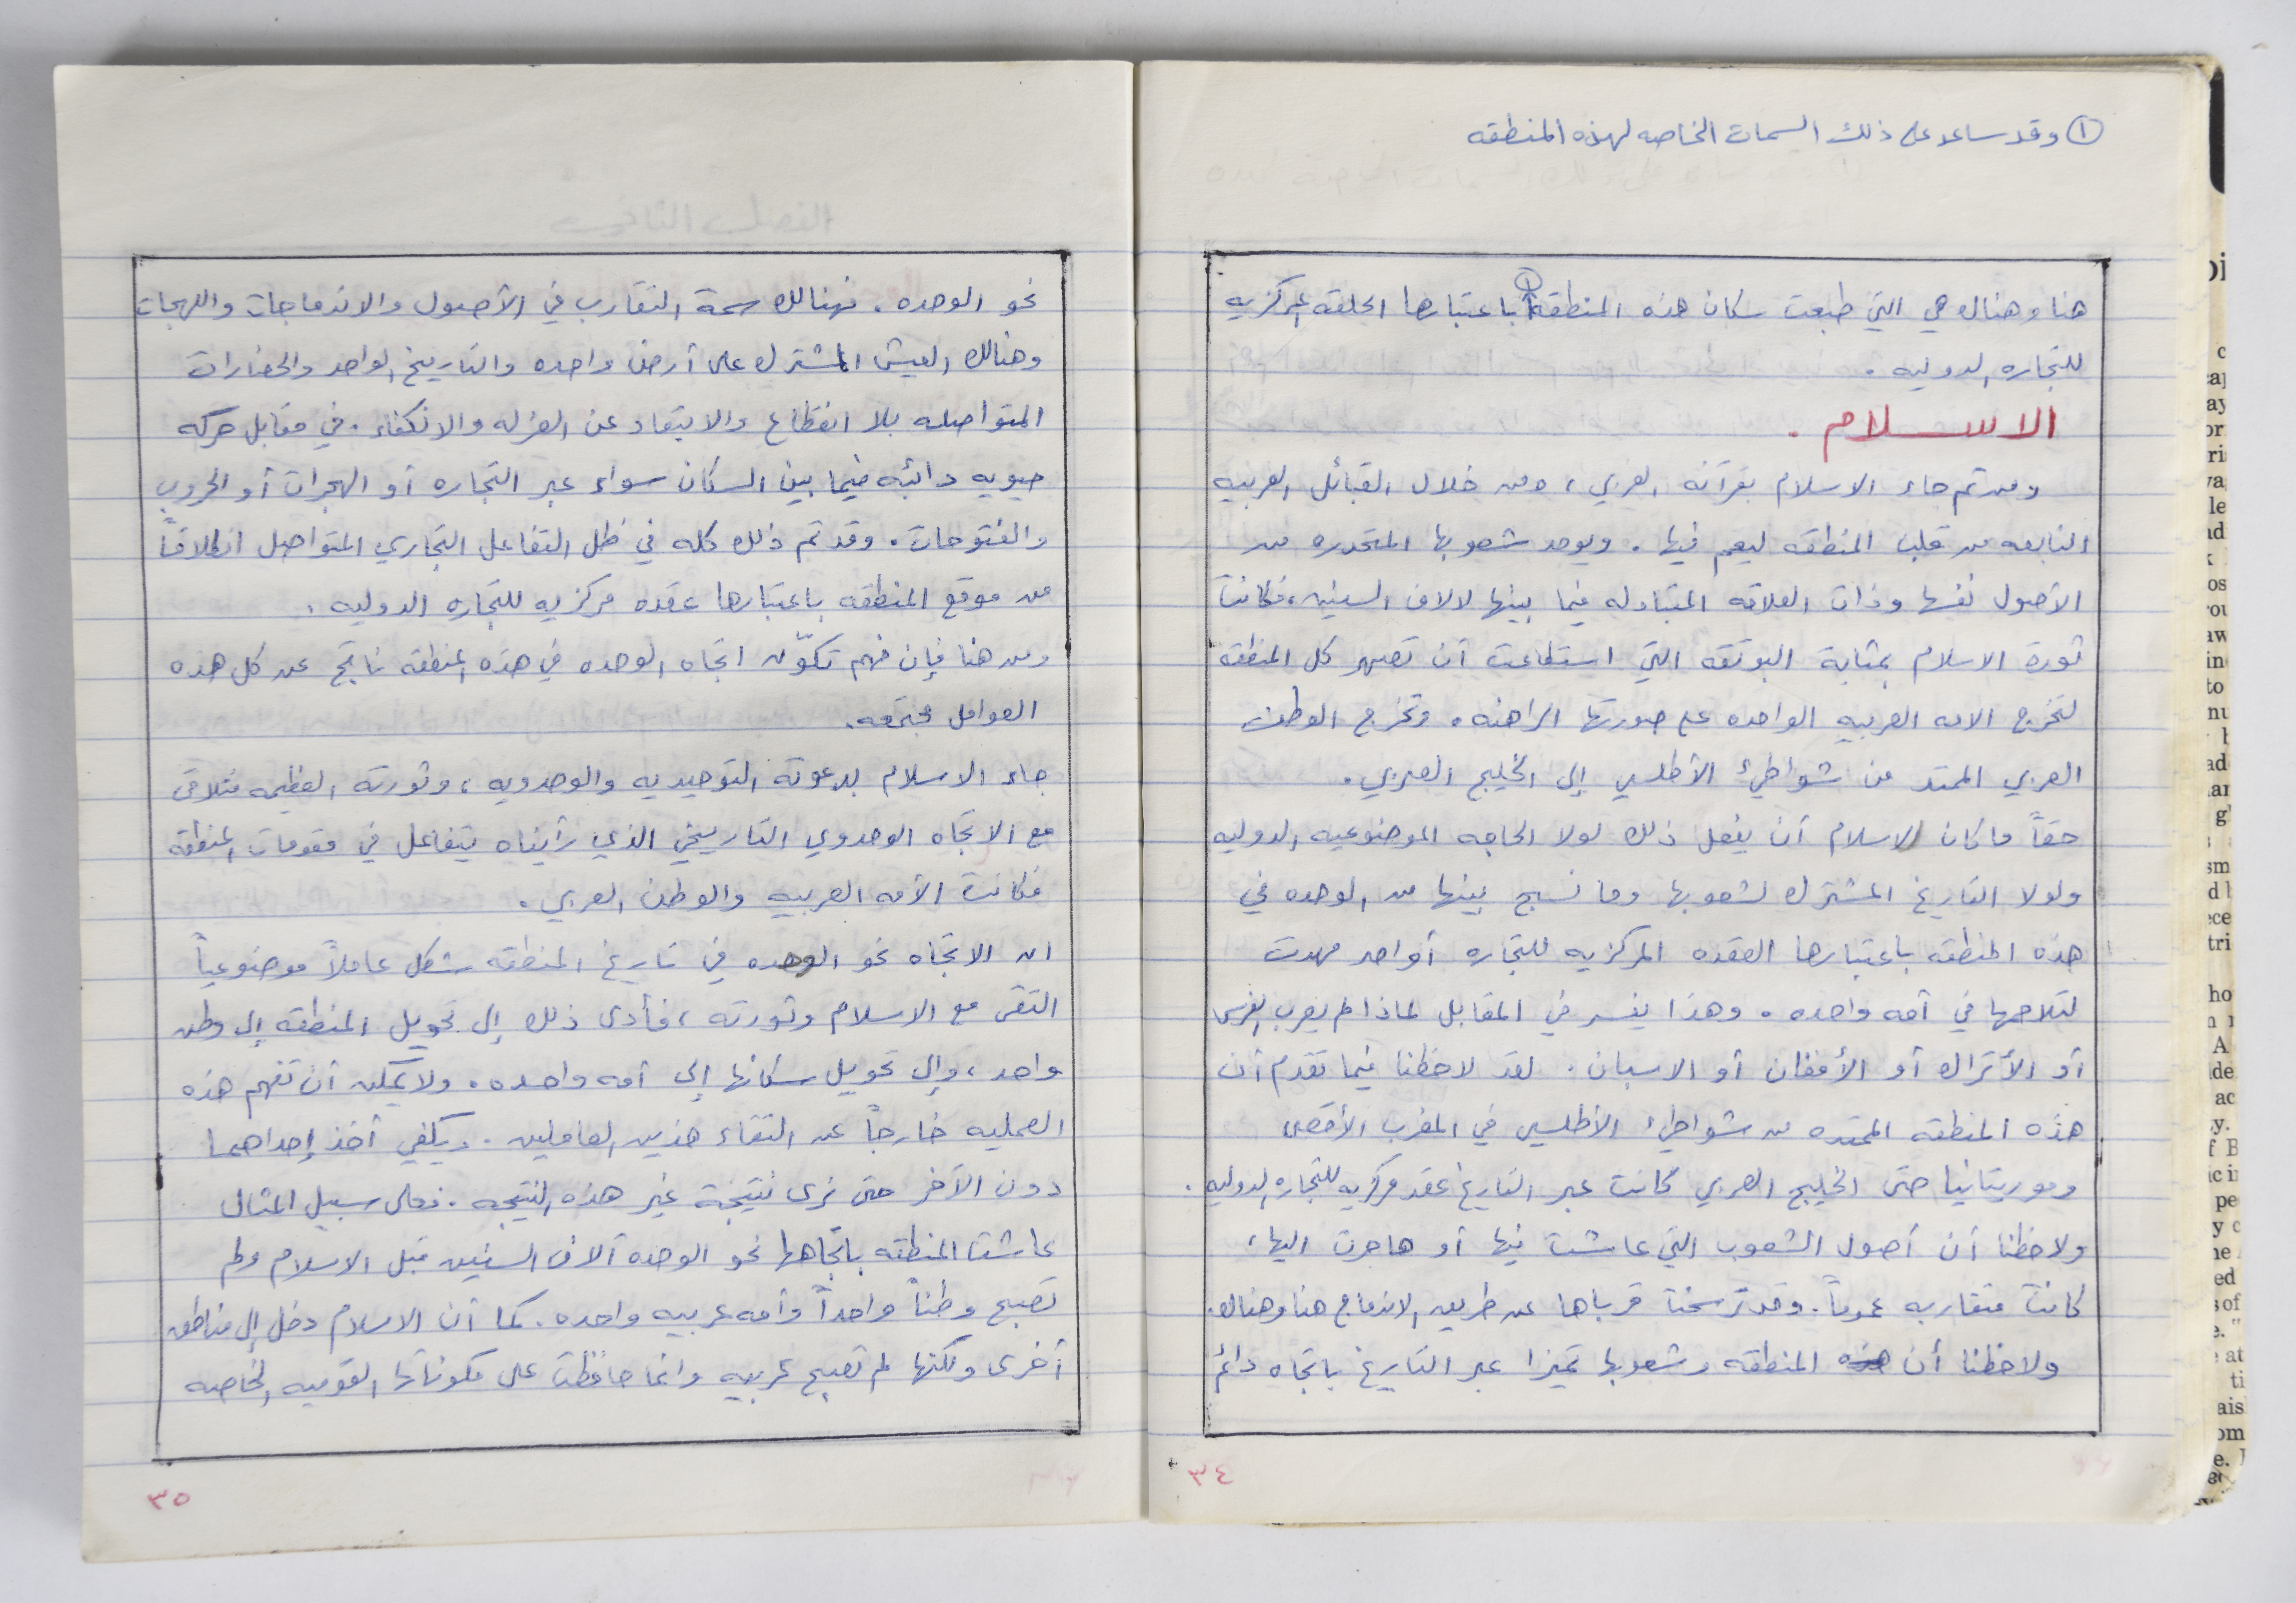 ① وقد ساعد على ذلك السمات الخاصه لهذه المنطقه
هنا وهناك هي التي طبعت سكان هذه المنطقة ① باعتبارها الحلقه المركزيه
للتجاره الدوليه .
الاسلام .
ومن ثم جاء الاسلام بقرآنه العربي ، ومن خلال القبائل العربيه
النابعه من قلب المنطقه ليعم فيها . ويوحد شعوبها المتحدره من
الأصول نفسها وذات العلاقه المتبادله فيما بينها لالاف السنين ، فكانت
ثورة الاسلام بمثابة البوتقه التي استطاعت أن تصهر كل المنطقه
لتخرج الامه العربيه الواحده على صورتها الراهنه . وتخرج الوطن
العربي الممتد من شواطئ الأطلسي إلى الخليج العربي .
حقاً ما كان للاسلام أن يفعل ذلك لولا الحاجه الموضوعيه الدوليه
ولولا التاريخ المشترك لشعوبها وما نسج بينها من الوحده في
هذه المنطقه باعتبارها العقده المركزيه للتجاره أواصر مهدت
لتلاحمها في أمه واحده . وهذا يفسر في المقابل لماذا لم يعرب الفرس
أو الأتراك أو الأفغان أو الاسبان . لقد لاحظنا فيما تقدم أن
هذه المنطقه الممتده من شواطئ الاطلسي في المغرب الأقصى
وموريتانيا حتى الخليج العربي كانت عبر التاريخ عقد مركزيه للتجاره الدوليه .
ولاحظنا أن أصول الشعوب التي عاشت فيها أو هاجرت اليها ،
كانت متقاربه عموماً . وقد ترسخت قرباها عن طريق الاندماج هنا وهناك .
ولاحظنا أن هذه المنطقه وشعوبها تميزا عبر التاريخ باتجاه دائم
٣٤
نحو الوحده . فهنالك سمة التقارب في الأصول والاندماجات واللهجات
وهنالك العيش المشترك على أرض واحده والتاريخ الواحد والحضارات
المتواصله بلا انقطاع والابتعاد عن العزله والانكفاء . في مقابل حركه
حيويه دائبه فيما بين السكان سواء عبر التجاره أو الهجرات أو الحروب
والفتوحات . وقد تم ذلك كله في ظل التفاعل التجاري المتواصل انطلاقاً
من موقع المنطقه باعتبارها عقده مركزيه للتجاره الدوليه .
ومن هنا فإن فهم تكوّن اتجاه الوحده في هذه المنطقه ناتج عن كل هذه
العوامل مجتمعه .
جاء الاسلام بدعوته التوحيديه والوحدويه ، وثورته العظيمه متلاقى
مع الاتجاه الوحدوي التاريخي الذي رأيناه يتفاعل في مقومات المنطقه
فكانت الأمه العربيه والوطن العربي .
ان الاتجاه نحو الوحده في تاريخ المنطقه شكل عاملاً موضوعياً
التقى مع الاسلام وثورته ، فأدى ذلك إلى تحويل المنطقه إلى وطن
واحد ، وإلى تحويل سكانها إلى أمه واحده . ولا يمكن أن تفهم هذه
العمليه خارجاً عن التقاء هذين العاملين . ويكفي أخذ إحداهما
دون الآخر حتى نرى نتيجة غير هذه النتيجه . فعلى سبيل المثال
عاشت المنطقه باتجاهها نحو الوحده آلاف السنين قبل الاسلام ولم
تصبح وطناً واحداً وأمه عربيه واحده . كما أن الاسلام دخل إلى مناطق
أخرى ولكنها لم تصبح عربيه وانما حافظت على مكوناتها القوميه الخاصه
٣٥